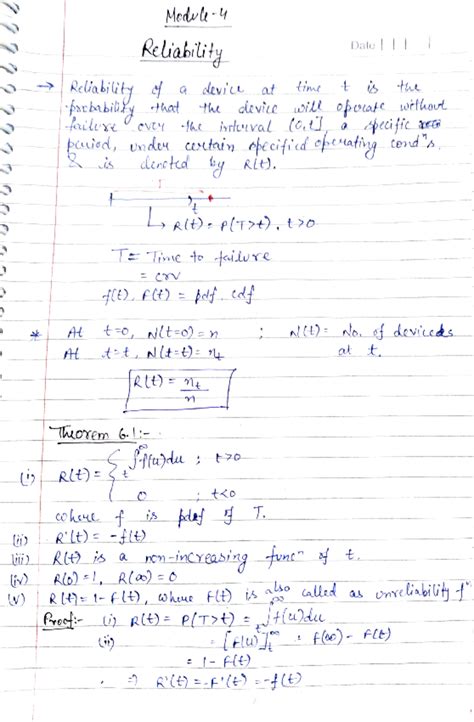 Module-4
Reliability
Date
→ Reliability of a device at time t is the
probability that the device will operate without
failure over the interval (0,t] a specific
period, under certain specified operating condⁿs,
& is denoted by R(t).
t
↳ R(t) = P(T>t), t>0
T = Time to failure
= crv
f(t), F(t) = pdf, cdf
* At t=0, N(t=0) = n ; N(t) = No. of devices
At t=t, N(t=t) = n_t at t.
R(t) = n_t/n
Theorem 6.1:-
(i) R(t) = { ∫_t^∞ f(u)du ; t>0
0 ; t<0
where f is pdf of T.
(ii) R'(t) = -f(t)
(iii) R(t) is a non-increasing funcⁿ of t.
(iv) R(0)=1, R(∞)=0
(v) R(t) = 1-F(t), where F(t) is also called as unreliability fⁿ
Proof:- (i) R(t) = P(T>t) = ∫_t^∞ f(u)du
(ii) = [F(u)]_t^∞ = F(∞) - F(t)
= 1 - F(t)
⇒ R'(t) = -F'(t) = -f(t)